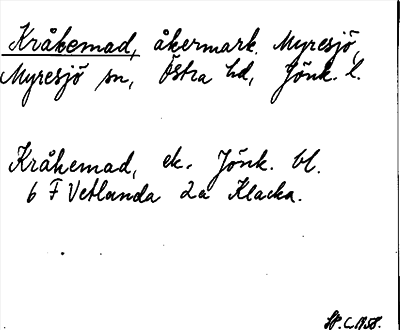 Kråkemad, åkermark. Myresjö,
Myresjö sn, Östra hd, Jönk. l.
Kråkemad, ek. Jönk. bl.
6 F Vetlanda 2a Klacka.